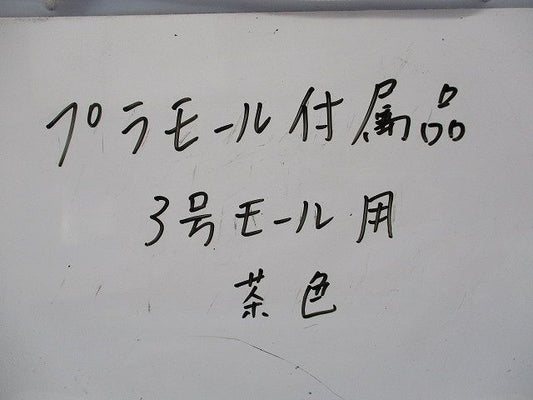 プラモール付属品
3号モール用
茶色